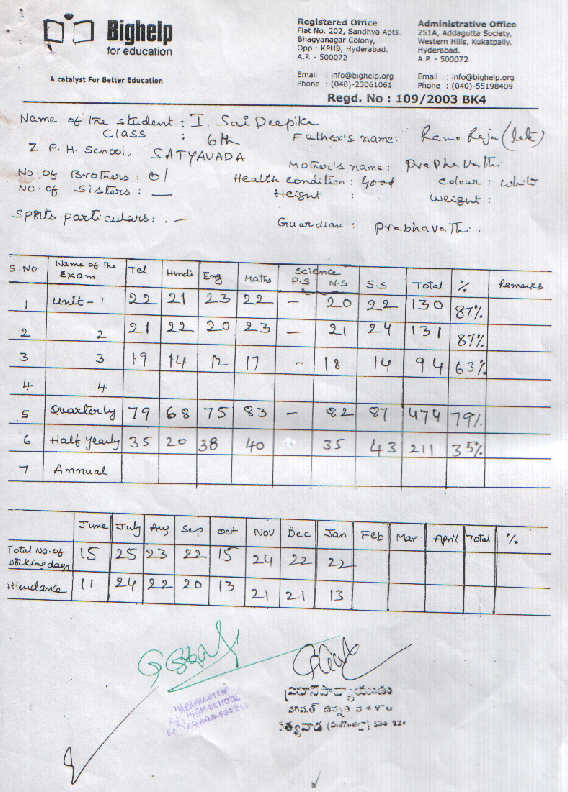 Bighelp
for education
A catalyst For Better Education
Registered Office
Flat No. 202, Sandhya Apts.
Bhagyanagar Colony,
Opp : KPHB, Hyderabad.
A.P. - 500072
Email : info@bighelp.org
Phone : (040)-23061061
Administrative Office
251A, Addagutta Society,
Western Hills, Kukatpally,
Hyderabad.
A.P. - 500072
Email : info@bighelp.org
Phone : (040)-55198409
Regd. No : 109/2003 BK4
Name of the student : I. Sai Deepika
Class : 6th Father's name: Rama Raju (late)
Z. P. H. School, SATYAVADA Mother's name : Prabhavathi
No. of Brothers : 01 Health condition : Good Colour : white
No. of Sisters : — Height : Weight :
Sports particulars : - Guardian : Prabhavathi.
S.No Name of the Exam Tel Hindi Eng Maths Science P.S N.S S.S Total % Remarks
1 Unit - 1 22 21 23 22 - 20 22 130 87%
2 2 21 22 20 23 21 24 131 87%
3 3 19 14 12 17 - 18 14 94 63%
4 4
5 Quarterly 79 68 75 83 - 82 87 474 79%
6 Half yearly 35 20 38 40 35 43 211 35%
7 Annual
June July Aug Sep Oct Nov Dec Jan Feb Mar April Total %
Total No. of working days 15 25 23 22 15 24 22 22
Attendance 11 24 22 20 13 21 21 13
HEADMASTER
HIGH SCHOOL
ప్రధానోపాధ్యాయుడు